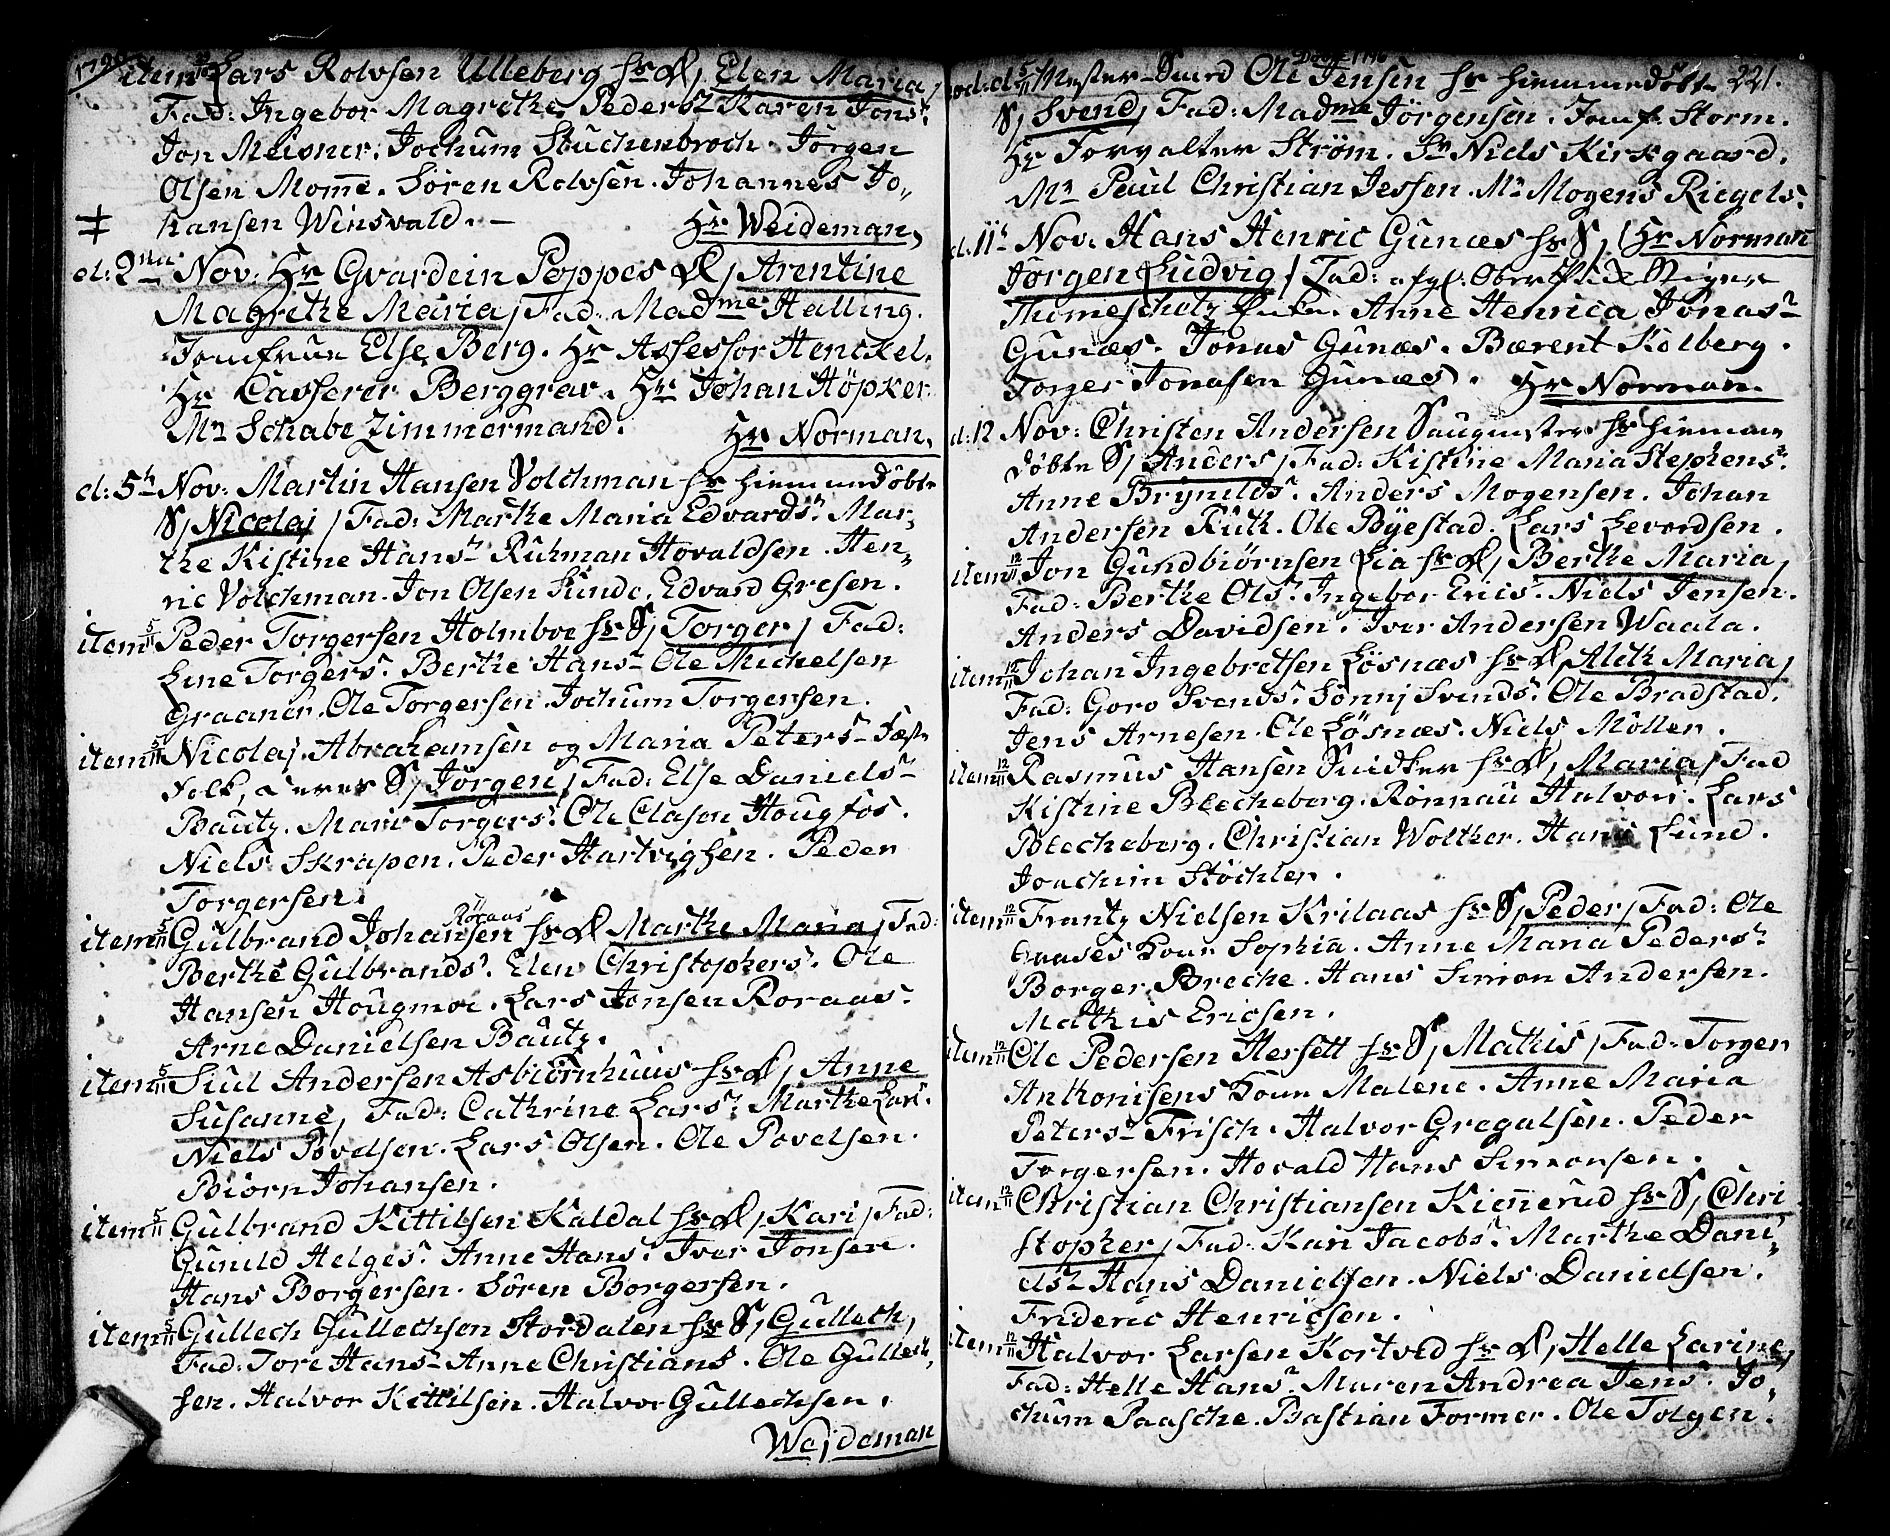 item Lars Rolvsen Ulleberg hs D, Elen Maria,
Fad: Ingebor Magrethe Pedersd Karen Jons:
Jon Meisner. Jochum Stuchenbroch. Jörgen
Olsen Mom̄e. Sören Rolvsen. Johannes Jo„
hansen Winsvald. — Hr Weideman,
d: 2den Nov: Hr Gvardein Poppes D, Arentine
Magrethe Maria, Fad: Madme Halling.
Jomfrue Else Berg. Hr Assessor Henckel.
Hr Casserer Berggrav. Hr Johan Höpker
Mr Schabe Zimmermand. Hr Norman.
d: 5t Nov: Martin Hansen Volchman hs hiemmedöbte
S, Nicolaj, Fad: Marthe Maria Edvards: Mar„
the Kistine Hans: Ruhman Hovaldsen. Hen„
ric Volchman. Jon Olsen Funde. Edvard Gresen.
item 5/11 Peder Torgersen Holmboe hs S, Torger, Fad:
Line Torgers: Berthe Hans: Ole Michelsen
Graaner. Ole Torgersen. Jochum Torgersen.
item 5/11 Nicolaj Abrahamsen og Maria Peters: Fæste
Folk, deres S, Jörgen, Fad: Else Daniels:
Bautz. Mari Torgers: Ole Clason Hougfos.
Niels Skrapen. Peder Hartvigsen. Peder
Torgersen.
item 5/11 Gulbrand Johansen Röraas hs D Marthe Maria, Fad:
Berthe Gulbrands: Elen Christophers: Ole
Hansen Hougmoe. Lars Jonsen Roraas.
Arne Danielsen Bautz.
item 5/11 Siul Andersen Asbiörnhuus hs D, Anne
Susanne, Fad: Cathrine Lars: Marthe Lars:
Niels Povelsen. Lars Olsen. Ole Povelsen.
Biörn Johansen.
item 5/11 Gulbrand Kittilsen Kaldal hs D, Kari, Fad:
Gunild Helges: Anne Hans: Iver Jonsen.
Hans Borgersen. Sören Borgersen.
item 5/11 Gullech Gullechsen Stordalen hs S, Gullech,
Fad: Tore Hans: Anne Christians. Ole Gullech„
sen. Halvor Kittilsen. Halvor Gullechsen.
Wejdeman
221.
d: 5/11 Mester-Smed Ole Jensen hs hiemmedöbte
S, Svend, Fad: Madme Jörgensen. Jomf. Storm.
Hr Forvalter Ström. Sr Niels Kirkgaard.
Mr Paul Christian Jessen. Mr Mogens Riegels:
d: 11t Nov: Hans Henric Gunæs hs S, (Hr Norman
Jörgen Ludvig, Fad: afgl: Ober
Thomeschotz Enke. Anne Henrica Jonas:
Gunæs. Jonas Gunæs. Bærent Kolberg.
Torger Jonasen Gunæs. Hr Norman.
d: 12 Nov: Christen Andersen Saugmester hs hiemme
döbte S, Anders, Fad: Kistine Maria Stephens:
Anne Brynilds: Anders Mogensen. Johan
Andersen Ruth. Ole Byestad. Lars Levordsen.
item 12/11 Jon Gundbiörnsen Lia hs D, Berthe Maria,
Fad: Berthe Ols: Ingebor Erics: Niels Jensen.
Anders Davidsen. Iver Andersen Waala.
item 12/11 Johan Ingebretsen Lösnæs hs D, Aleth Maria,
Fad: Goro Svends: Sönnj Svends: Ole Bradstad.
Jens Arnesen. Ole Lösnæs. Niels Möller.
item 12/11 Rasmus Hansen Snidker hs D, Maria, Fad
Kistine Blecheberg. Rönnau Halvors: Lars
Blecheberg. Christian Wolther. Hans Lund.
Joachim Stöchler.
item 12/11 Frantz Nielsen Krilaas hs S, Peder, Fad: Ole
Gaases Koun Sophia. Anne Maria Peders:
Borger Breche. Hans Simon Andersen.
Mathis Ericsen.
item 12/11 Ole Pedersen Hersett hs S, Mathis, Fad: Torger
Anthonisens Koun Malene. Anne Maria
Peters: Frisch. Halvor Gregalsen. Peder
Torgersen. Hovald Hans Simonsen.
item 12/11 Christian Christiansen Kiennerud hs S, Chri
stopher, Fad: Kari Jacobs: Marthe Dani„
els: Hans Danielsen. Niels Danielsen.
Frideric Henricsen.
item 12/11 Halvor Larsen Kortved hs D, Helle Larine,
Fad: Helle Hans: Maren Andrea Jens: Jo„
chum Paasche. Bastian Former. Ole Tolgen.